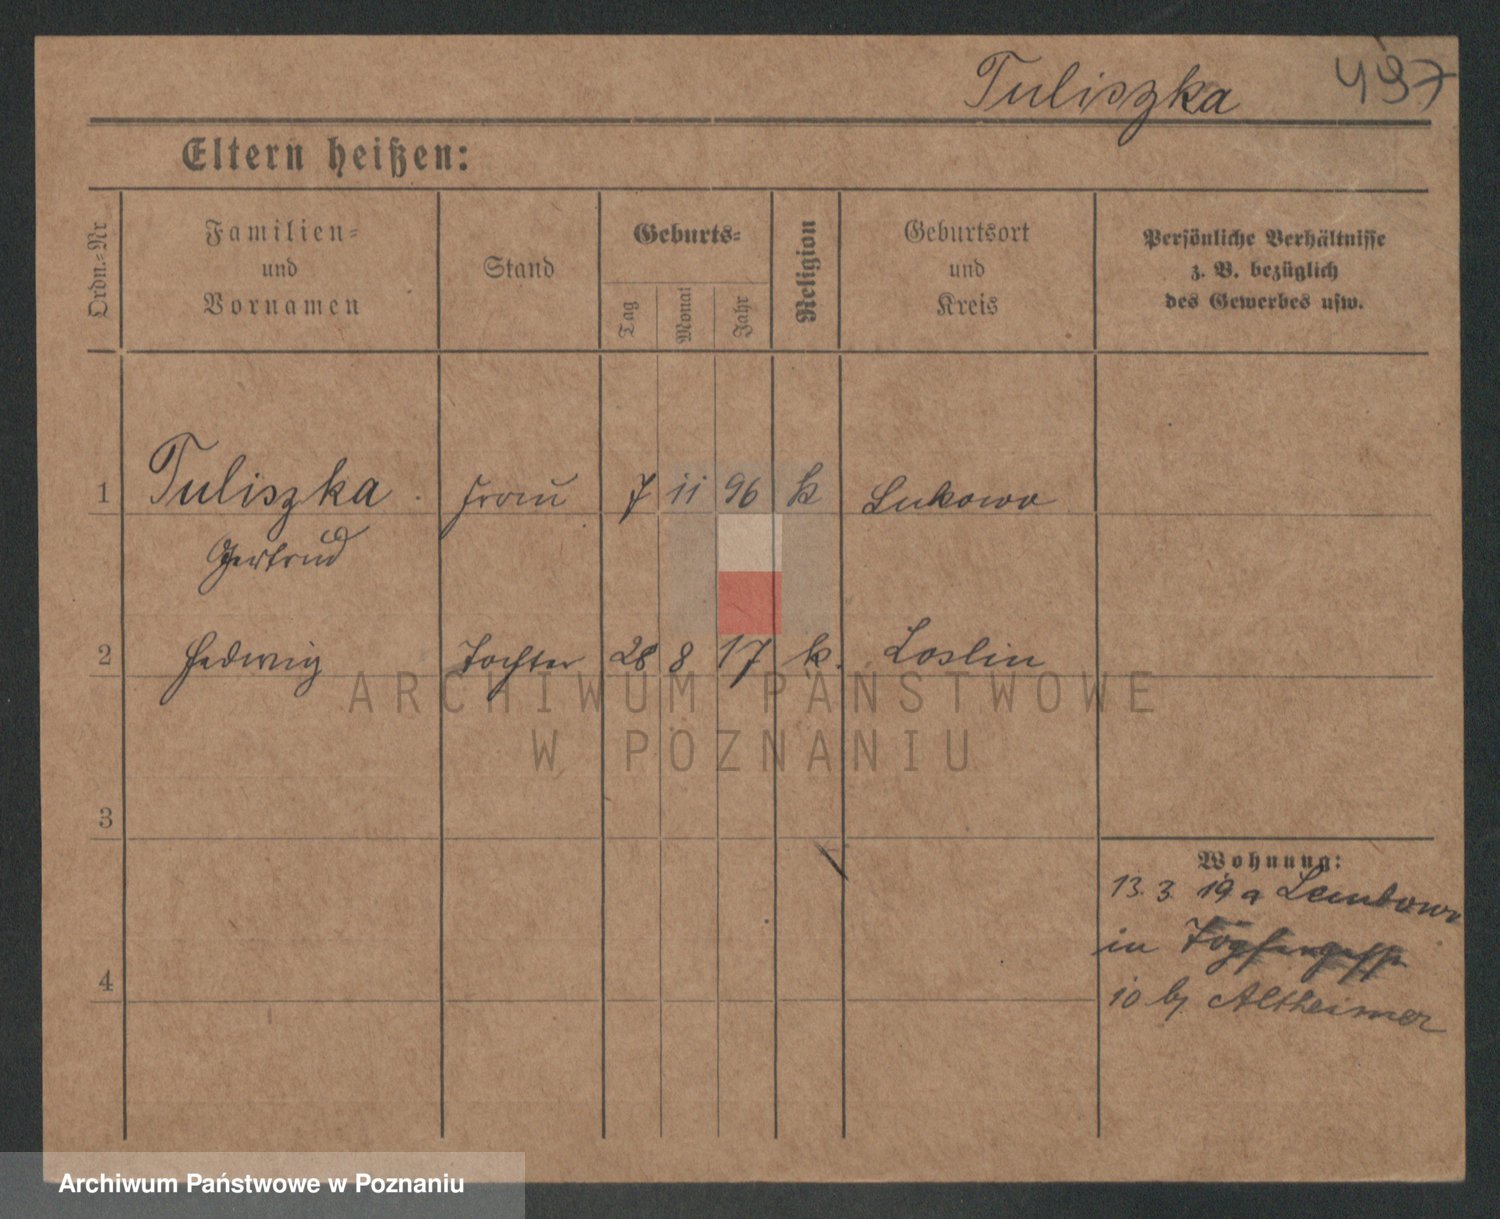 Tuliszka 497
Eltern heißen:
Ordn.=Nr
Familien=
und
Vornamen
Stand
Geburts=
Tag
Monat
Jahr
Religion
Geburtsort
und
Kreis
Persönliche Verhältnisse
z. B. bezüglich
des Gewerbes usw.
1 Tuliszka Frau 7 11 96 k Lukowo
Gertrud
2 Hedwig Tochter 28 8 17 k. Loslin
ARCHIWUM PAŃSTWOWE
W POZNANIU
3
Wohnung:
13. 3. 19 a
in
4
10 by Altheimer
Archiwum Państwowe w Poznaniu